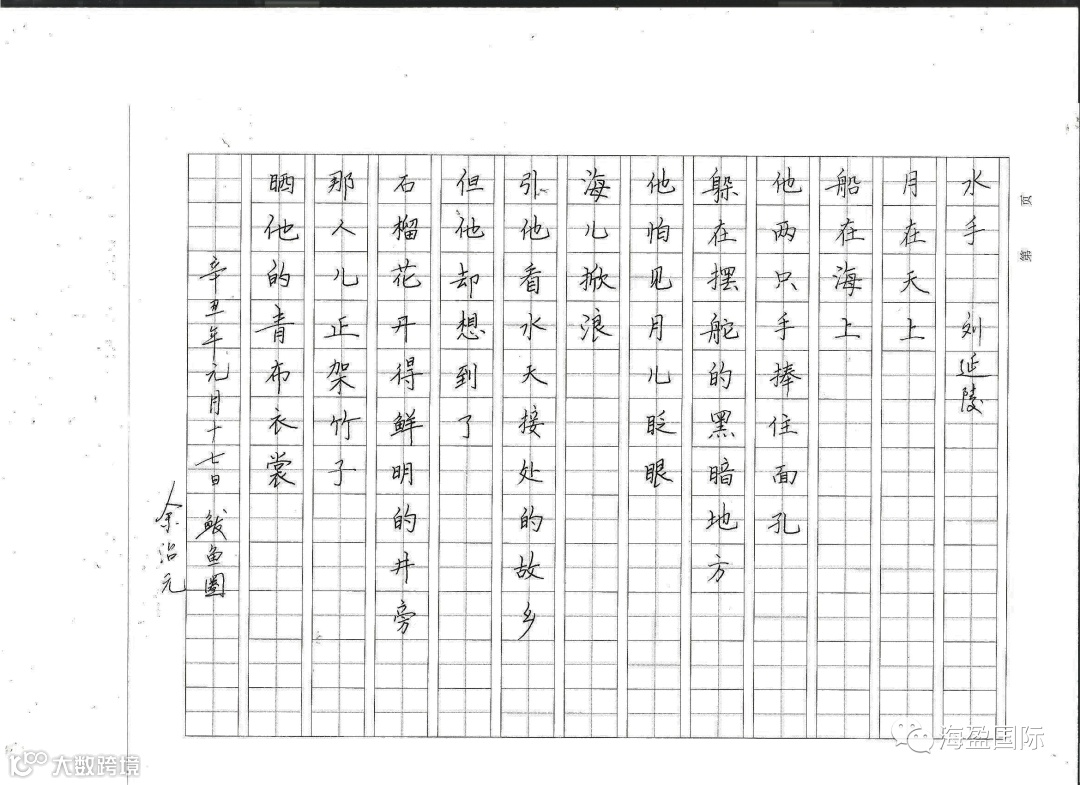 水手 刘延陵
月在天上
船在海上
他两只手捧住面孔
躲在摆舵的黑暗地方
他怕见月儿眨眼
海儿掀浪
引他看水天接处的故乡
但他却想到了
石榴花开得鲜明的井旁
那人儿正架竹子
晒他的青布衣裳
辛丑年元月十七日 鲅鱼圈
余治元
第 页
海盈国际
大数跨境